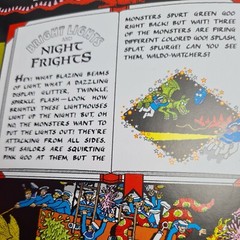 BRIGHT LIGHTS
AND
NIGHT
FRIGHTS
HEY, WHAT BLAZING BEAMS
OF LIGHT, WHAT A DAZZLING
DISPLAY! GLITTER, TWINKLE,
SPARKLE, FLASH – LOOK, HOW
BRIGHTLY THESE LIGHTHOUSES
LIGHT UP THE NIGHT! BUT OH
NO, THE MONSTERS WANT TO
PUT THE LIGHTS OUT! THEY'RE
ATTACKING FROM ALL SIDES.
THE SAILORS ARE SQUIRTING
PINK GOO AT THEM, BUT THE
MONSTERS SPURT GREEN GOO
RIGHT BACK! BUT WAIT! THREE
OF THE MONSTERS ARE FIRING
DIFFERENT COLORED GOO! SPLISH,
SPLAT, SPLURGE! CAN YOU SEE
THEM, WALDO-WATCHERS?